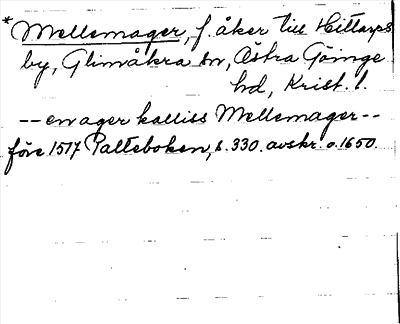 *Mellemager, f. åker till Hittarps
by, Glimåkra sn, Östra Göinge
hd, Krist. l.
--en ager kalliss Mellemager--
före 1517 Palteboken, s. 330. avskr. o. 1650.